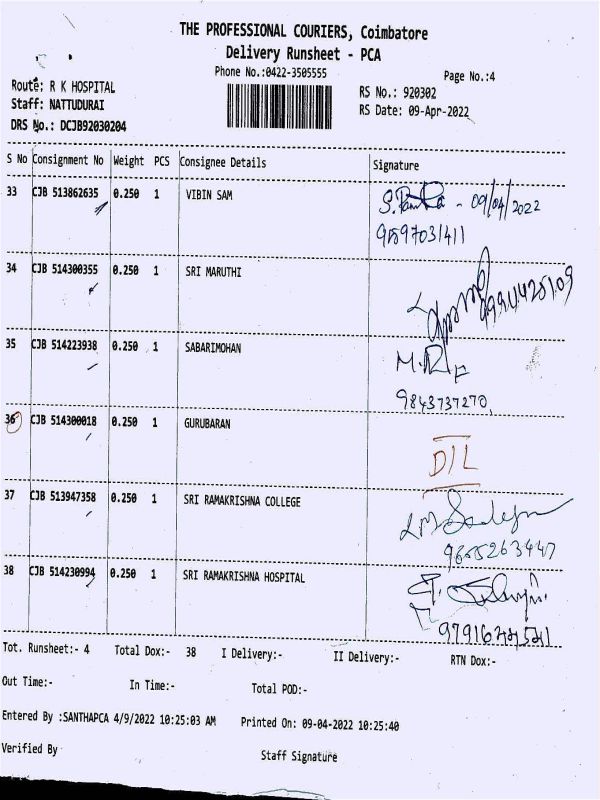 THE PROFESSIONAL COURIERS, Coimbatore
Delivery Runsheet - PCA
Phone No.:0422-3505555
Page No.:4
Route: R K HOSPITAL
RS No.: 920302
Staff: NATTUDURAI
RS Date: 09-Apr-2022
DRS No.: DCJB92030204
S No Consignment No Weight PCS Consignee Details Signature
33 CJB 513862635 0.250 1 VIBIN SAM - 09/04/2022
9597031411
34 CJB 514300355 0.250 1 SRI MARUTHI
35 CJB 514223938 0.250 1 SABARIMOHAN
9843737270
36 CJB 514300018 0.250 1 GURUBARAN
D/L
37 CJB 513947358 0.250 1 SRI RAMAKRISHNA COLLEGE
9655263447
38 CJB 514230994 0.250 1 SRI RAMAKRISHNA HOSPITAL
Tot. Runsheet:- 4 Total Dox:- 38 I Delivery:- II Delivery:- RTN Dox:-
Out Time:- In Time:- Total POD:-
Entered By :SANTHAPCA 4/9/2022 10:25:03 AM Printed On: 09-04-2022 10:25:40
Verified By Staff Signature